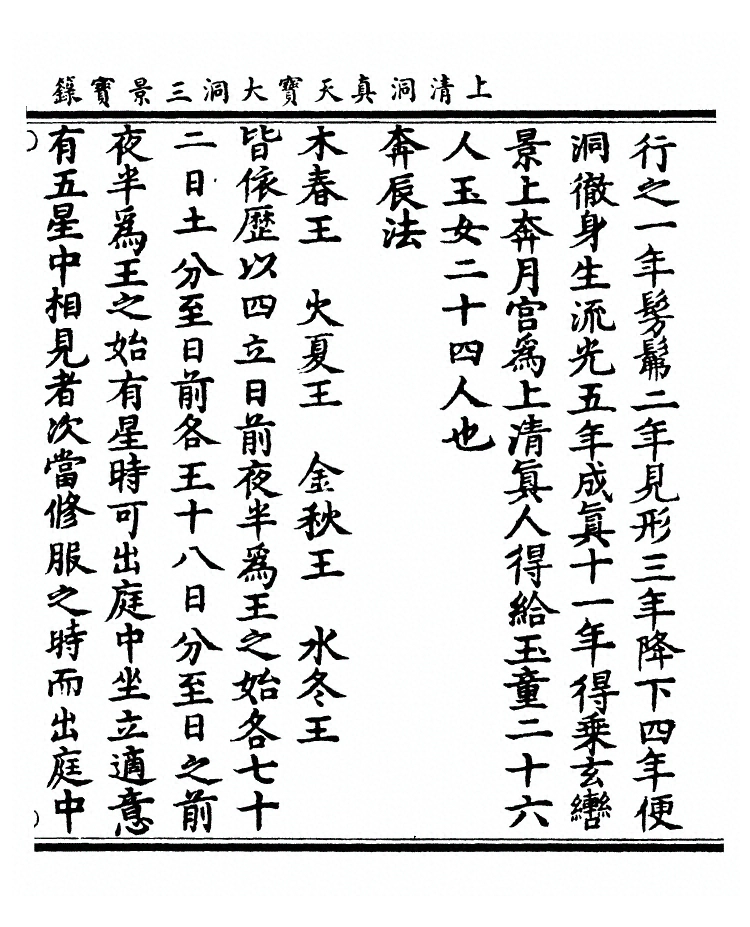 上清洞真天寶大洞三景寶籙
行之一年髣髴二年見形三年降下四年便
洞徹身生流光五年成眞十一年得乗玄轡
景上奔月宮爲上清眞人得給玉童二十六
人玉女二十四人也
奔辰法
木春王　火夏王　金秋王　水冬王
皆依歷以四立日前夜半爲王之始各七十
二日土分至日前各王十八日分至日之前
夜半爲王之始有星時可出庭中坐立適意
有五星中相見者次當修服之時而出庭中